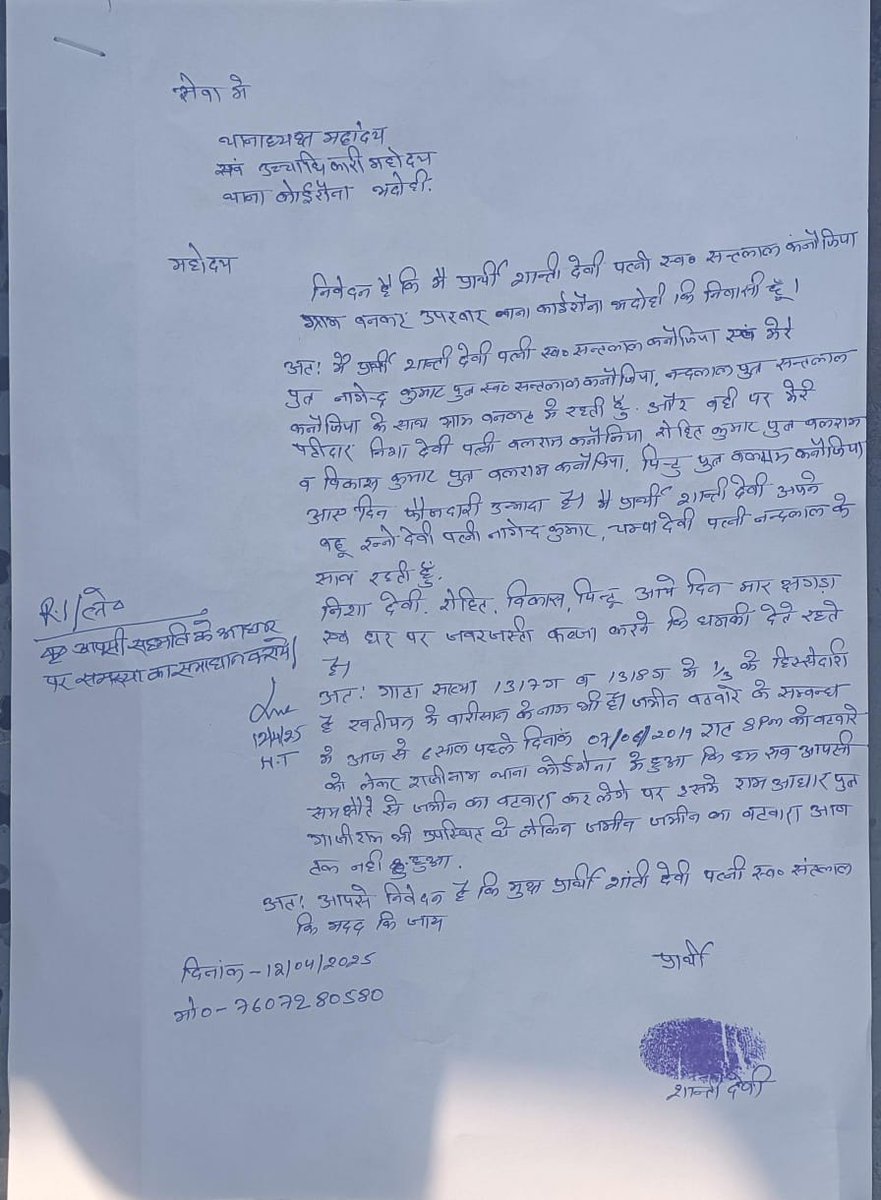 सेवा मे
थानाध्यक्ष महोदय
एवं उच्चाधिकारी महोदय
थाना कोईरौना भदोही.
महोदय
निवेदन है कि मै प्रार्थी शान्ती देवी पत्नी स्व० सन्तलाल कंनौजिया
ग्राम बनकट उपरवार थाना कोईरौना भदोही कि निवासी हूँ।
अतः मै प्रार्थी शान्ती देवी पत्नी स्व० सन्तलाल कनौजिया एवं मेरे
पुत्र नागेन्द्र कुमार पुत्र स्व० सन्तलाल कनौजिया, नन्दलाल पुत्र सन्तलाल
कनौजिया के साथ ग्राम बनकट मे रहती हूँ. और वही पर मेरी
पट्टीदार निशा देवी पत्नी बलराम कनौजिया रोहित कुमार पुत्र बलराम
व विकास कुमार पुत्र बलराम कनौजिया, पिन्टु पुत्र बलराम कनौजिया
आए दिन फौजदारी उन्मादा है। मै प्रार्थी शान्ती देवी अपने
बहू इन्नो देवी पत्नी नागेन्द्र कुमार, चम्पा देवी पत्नी नन्दलाल के
साथ रहती हुँ.
निशा देवी. रोहित, विकास, पिन्टू आये दिन मार झगड़ा
एवं घर पर जबरजस्ती कब्जा करने कि धमकी देते रहते
है।
R.I/ले०
आपसी सहमति के आधार
पर समस्या का समाधान कराये।
12/4/25
H.T
अतः गाटा सख्या 1317ग व 1318ग मे 1/3 के हिस्सेदारी
है खतौयन मे वारीसान के नाम भी है। जमीन बटवारे के सम्बन्ध
मे आज से 6 साल पहले दिनांक 07/06/2019 रात 8Pm को बटवारे
को लेकर राजीनामा थाना कोईरौना मे हुआ कि हम सब आपसी
समझौते से जमीन का बटवारा कर लेगे पर उसमे राम आधार पुत्र
गाजीराम भी उपस्थित थे लेकिन जमीन जमीन का बटवारा आज
तक नही हुआ.
अतः आपसे निवेदन है कि मुझ प्रार्थी शांती देवी पत्नी स्व० संतलाल
कि मदद कि जाय
दिनांक-12/04/2025
प्रार्थी
मो०-7607280580
शान्ती देवी